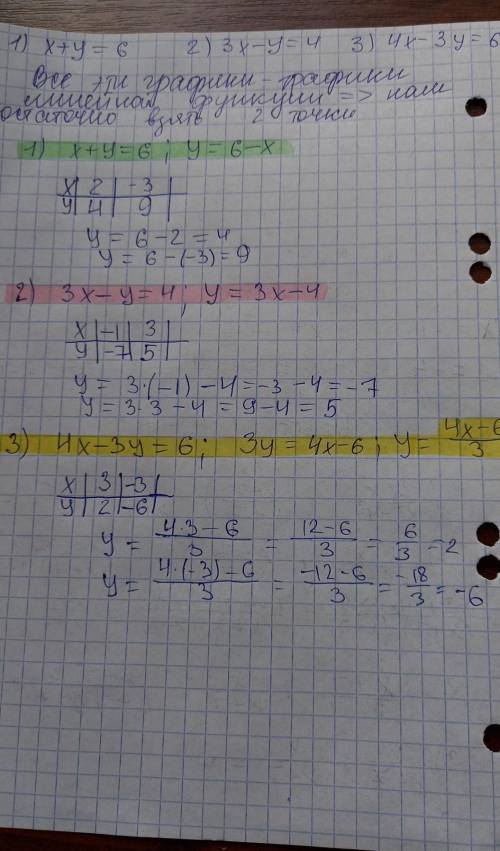 1) x+y=6 2) 3x-y=4 3) 4x-3y=6
Все эти графики - графики
линейная функции => нам
остаточно взять 2 точки
1) x+y=6; y=6-x
x | 2 | -3
y | 4 | 9
y = 6-2 = 4
y = 6-(-3) = 9
2) 3x-y=4; y=3x-4
x | -1 | 3
y | -7 | 5
y = 3·(-1) -4 = -3 -4 = -7
y = 3·3 -4 = 9-4 = 5
3) 4x-3y=6; 3y=4x-6; y= 4x-6/3
x | 3 | -3
y | 2 | -6
y = 4·3-6/3 = 12-6/3 = 6/3 = 2
y = 4·(-3)-6/3 = -12-6/3 = -18/3 = -6